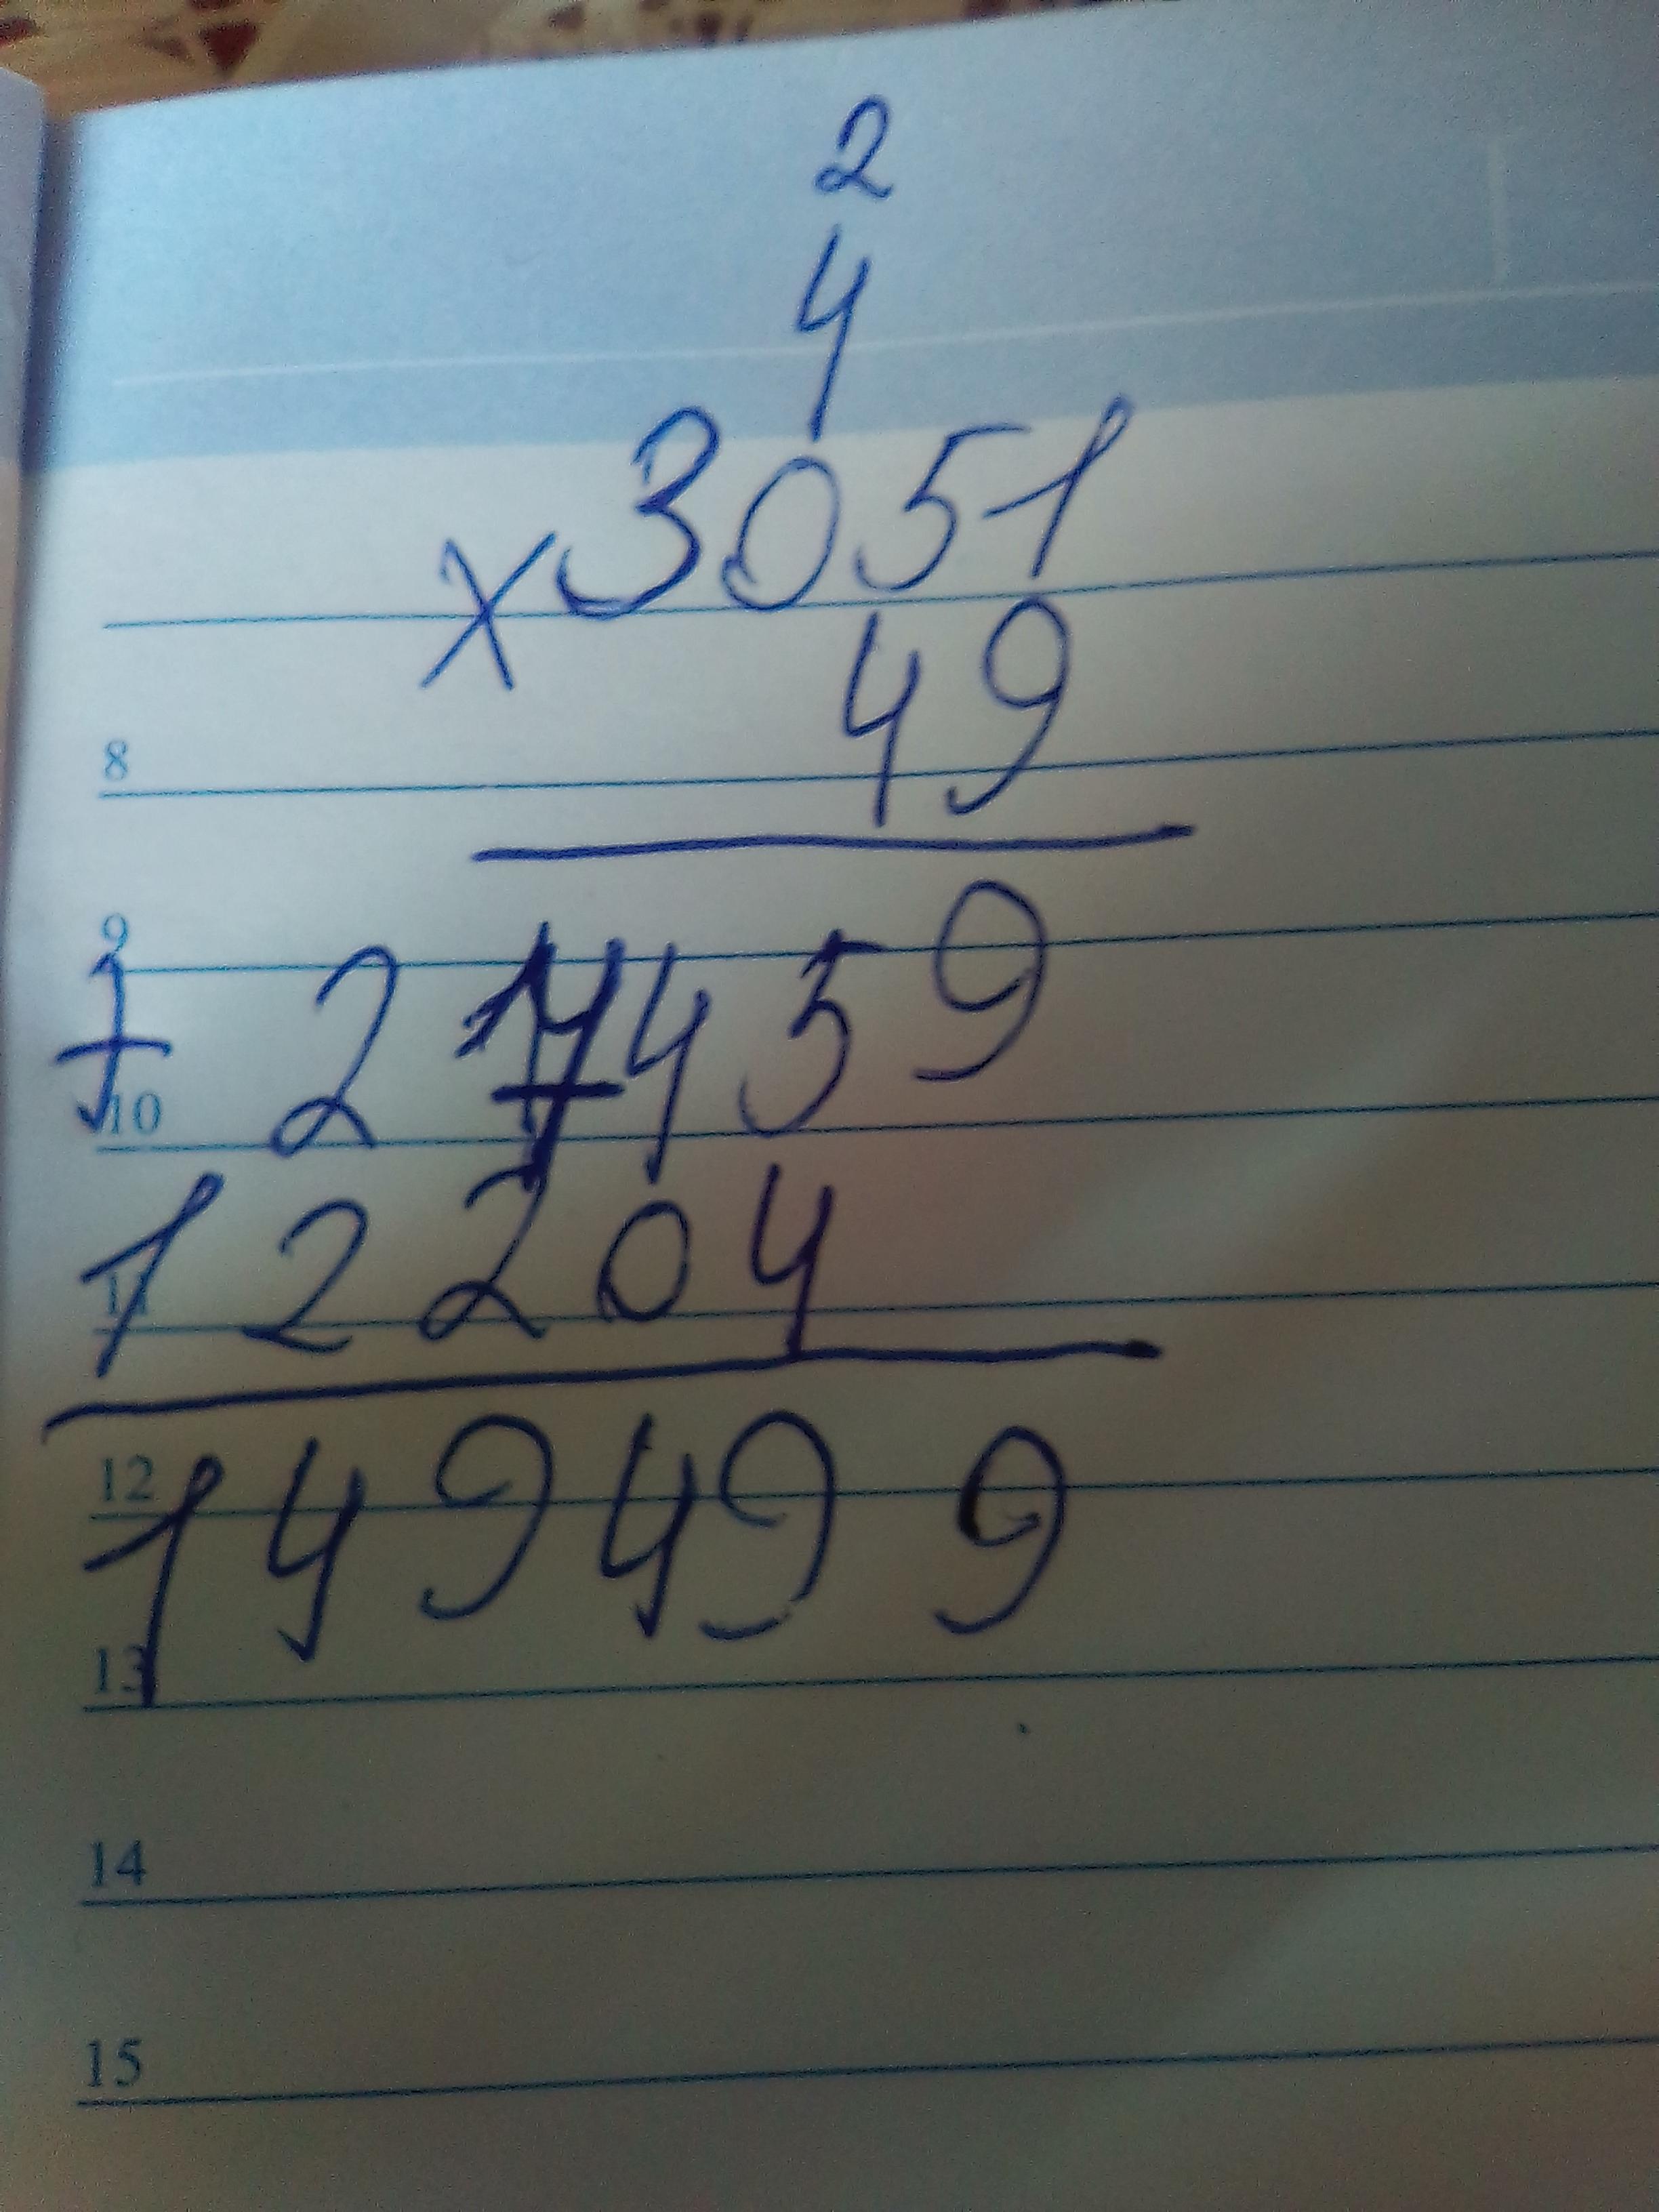 2
4
× 3051
49
8
9
+ 27459
10
12204
11
149499
12
13
14
15